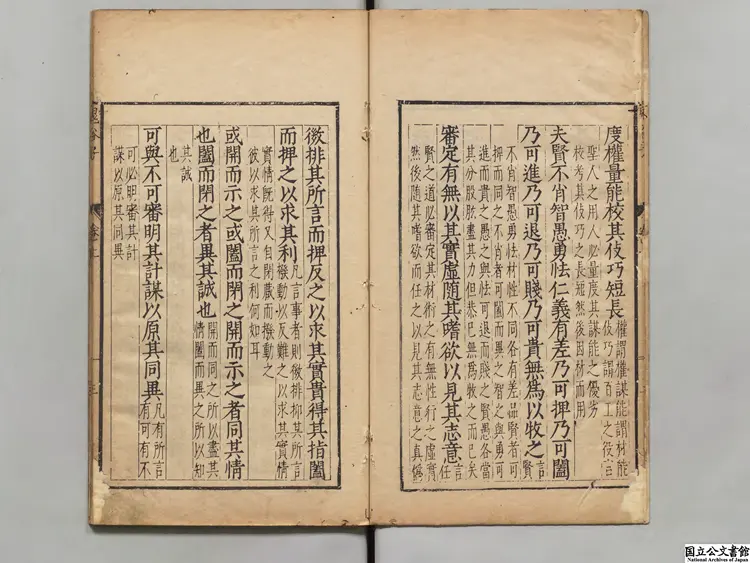 度權量能校其伎巧短長
權謂權謀能謂材能
伎巧謂百工之役言
聖人之用人必量度其謀能之優劣
校考其伎巧之長短然後因材而用
夫賢不肖智愚勇怯仁義有差乃可捭乃可闔
乃可進乃可退乃可賤乃可貴無為以牧之
言
賢
不肖智愚勇怯材性不同各有差品賢者可
捭而同之不肖者可闔而異之智之與勇可
進而貴之愚之與怯可退而賤之賢愚各當
其分股肱盡其力但恭巳無為牧之而巳矣
審定有無以其實虛隨其嗜欲以見其志意
言
任
賢之道必審定其材術之有無性行之虛實
然後隨其嗜欲而任之以見其志意之真僞
微排其所言而捭反之以求其實貴得其指闔
而捭之以求其利
凡言事者則微排抑其所言
撥動以反難之以求其實情
實情既得又自閉藏而撥動之
彼以求其所言之利何如耳
或開而示之或闔而閉之開而示之者同其情
也闔而閉之者異其誠也
開而同之所以盡其
情闔而異之所以知
其誠
也
可與不可審明其計謀以原其同異
凡有所言
有可有不
可必明審其計
謀以原其同異
鬼谷子
卷上
三
国立公文書館
National Archives of Japan